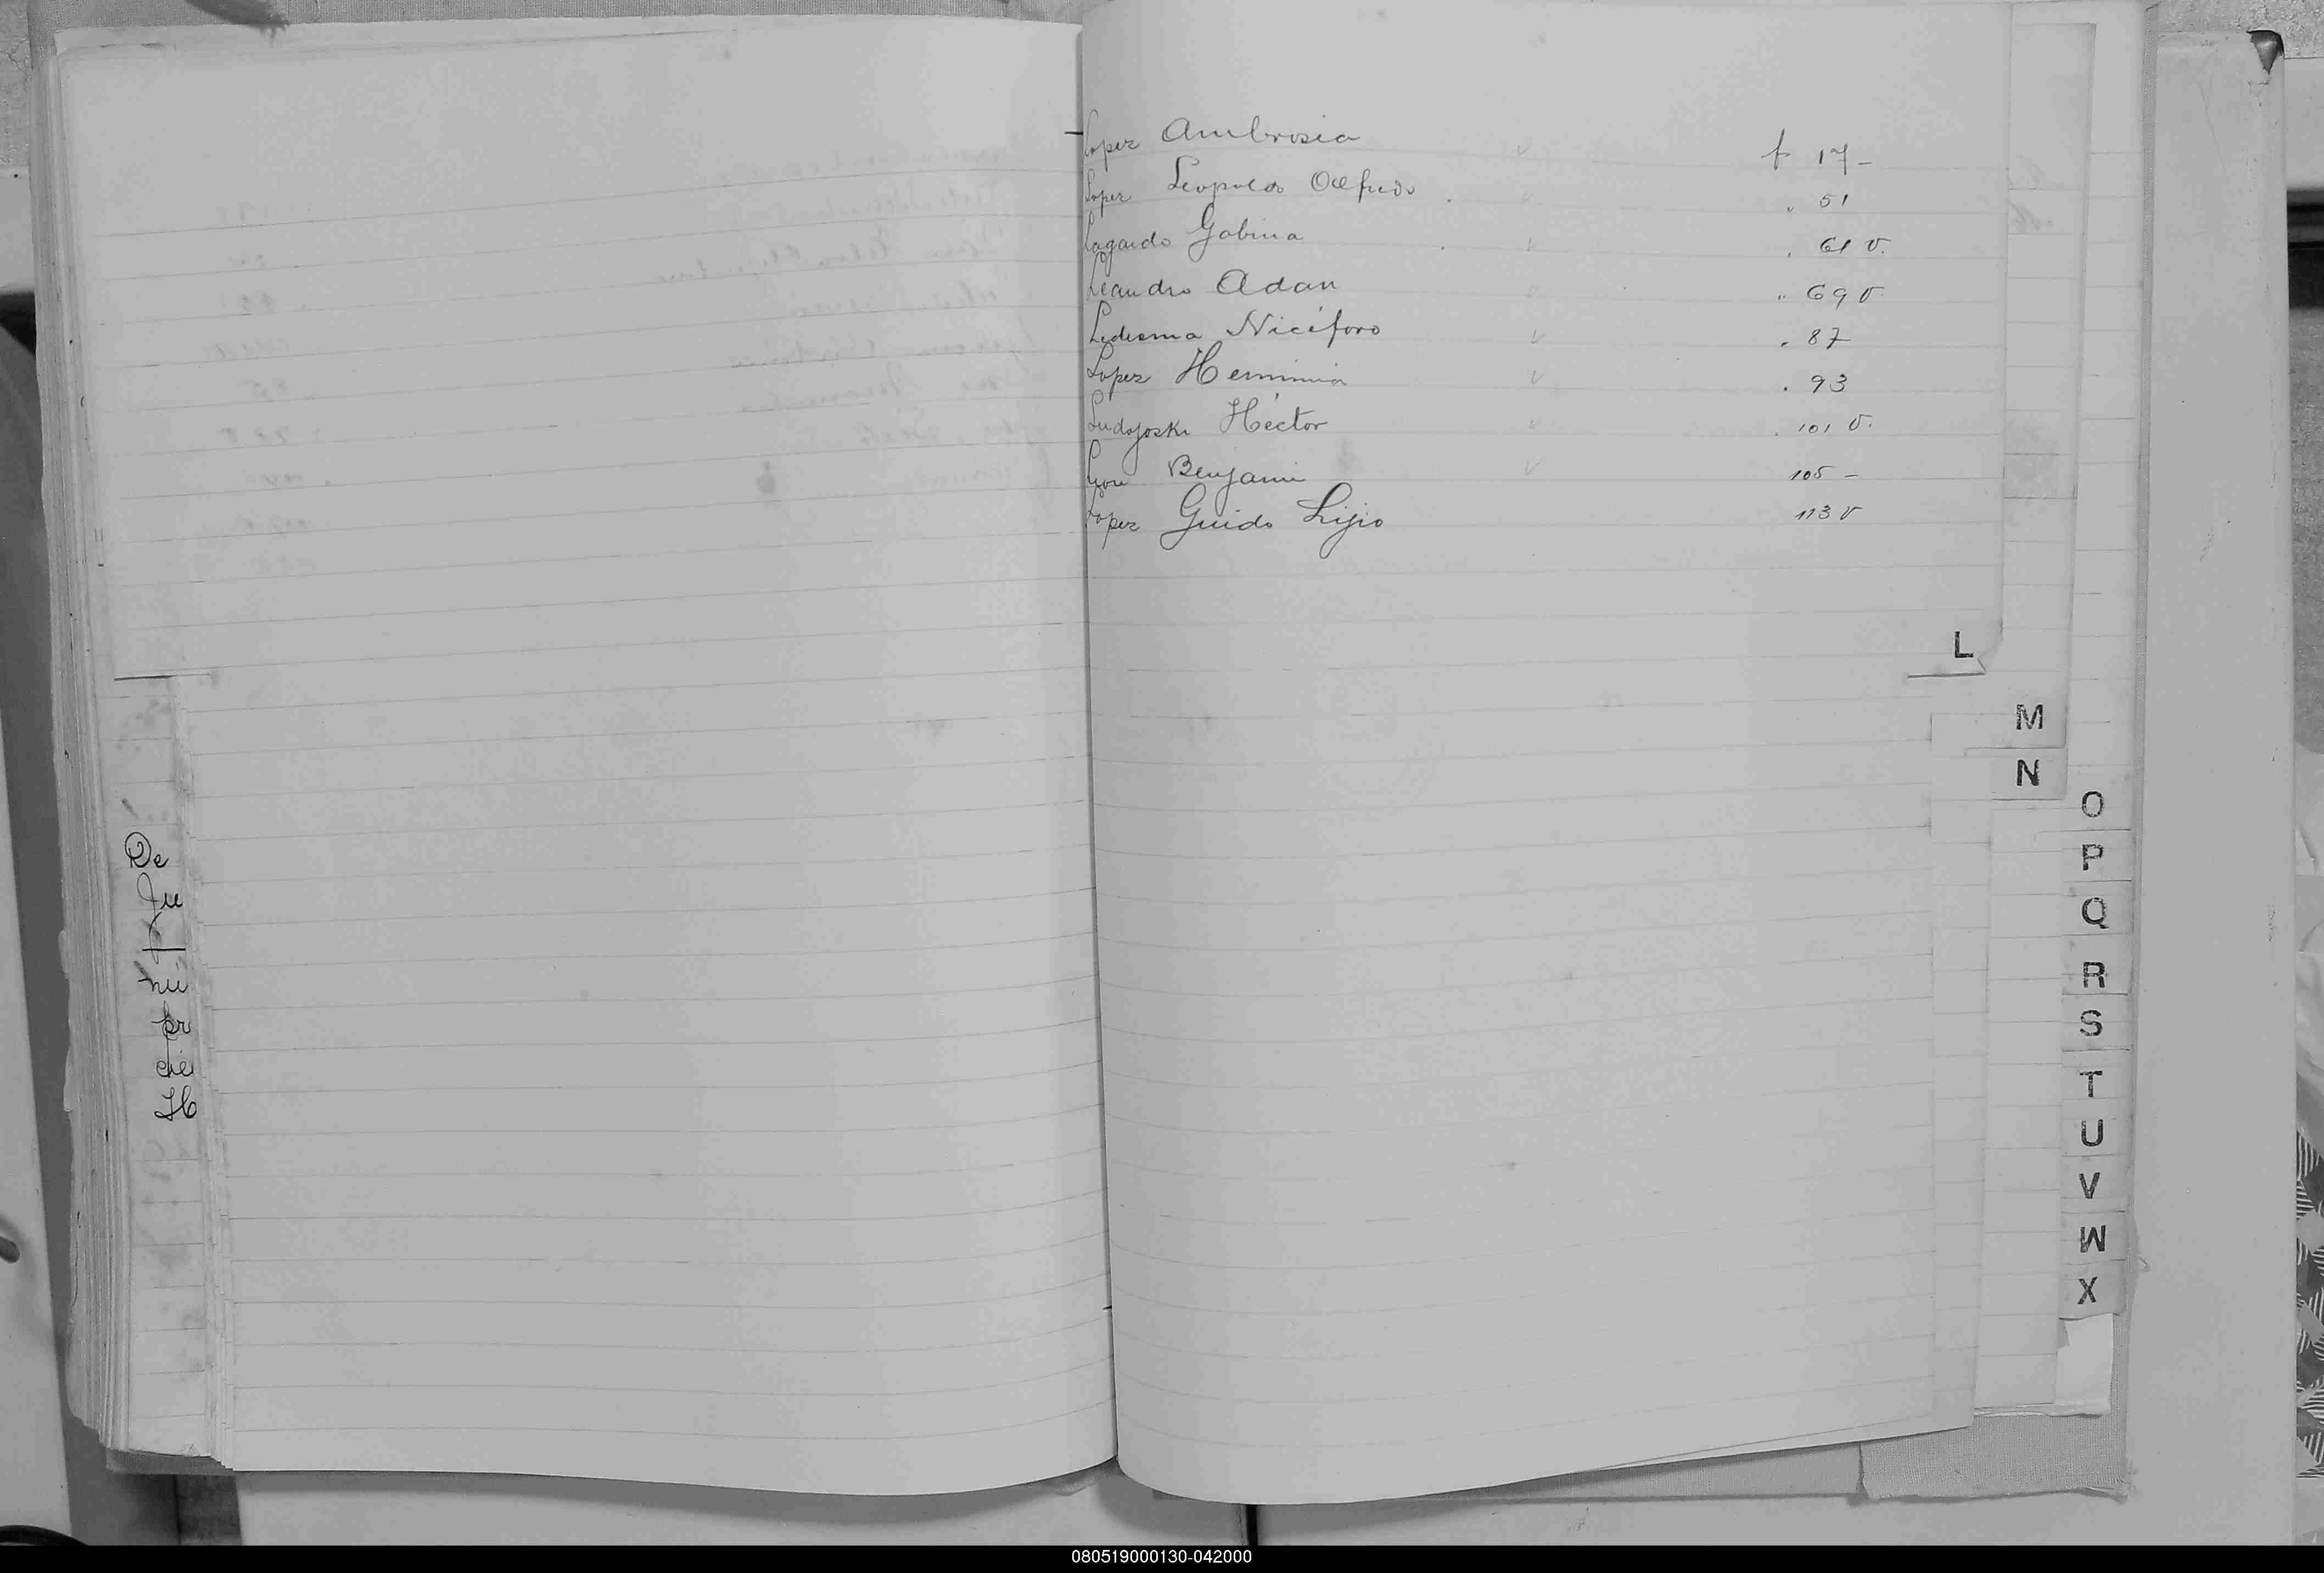 De
Ju
nú
pr
cie
H
Lopez Ambrosia f 17 -
Lopez Leopoldo Alfredo . " 51
Lagardo Gabina . " 61 v.
Leandro Adan " 69 v.
Ledesma Nicéforo " 87
Lopez Herminia " 93
Ludojoski Héctor " 101 v.
Leon Benjamin 105 -
Lopez Guido Ligio 113 v
L
M
N
O
P
Q
R
S
T
U
V
W
X
080519000130-042000